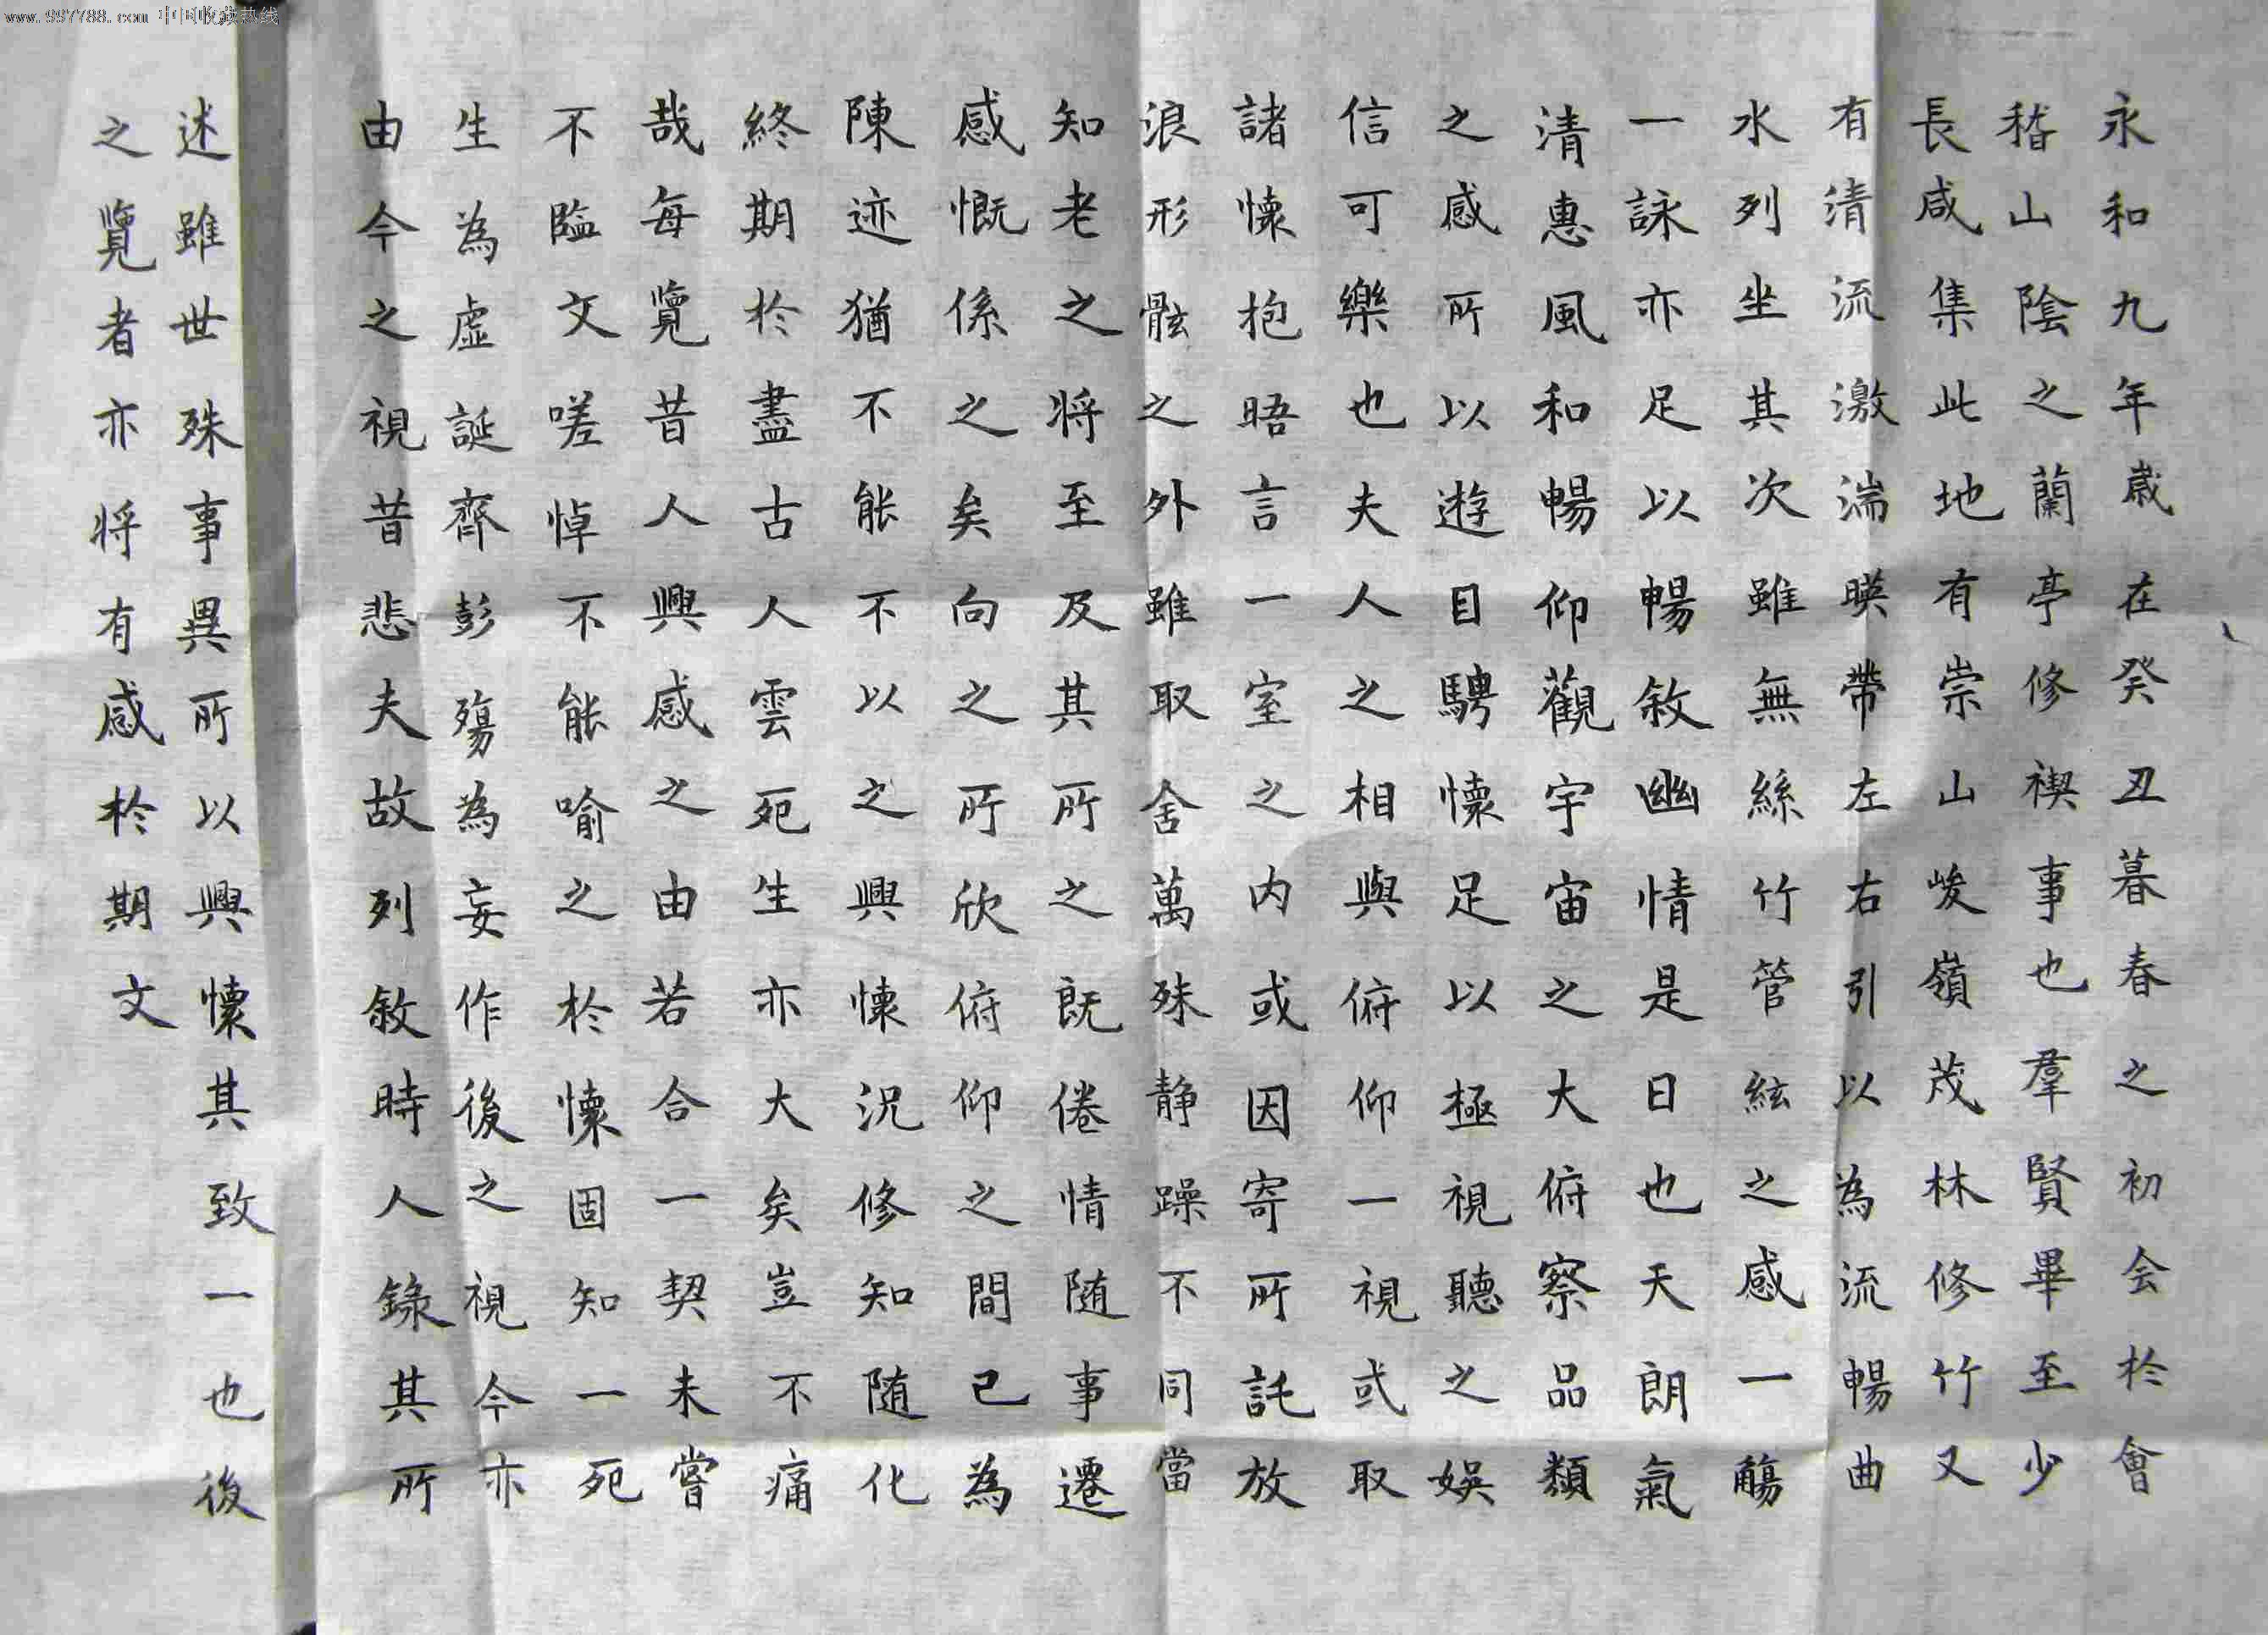 www.997788.com 中国收藏热线
永和九年歲在癸丑暮春之初会於會
稽山陰之蘭亭修禊事也羣賢畢至少
長咸集此地有崇山峻嶺茂林修竹又
有清流激湍暎帶左右引以為流暢曲
水列坐其次雖無絲竹管絃之感一觴
一詠亦足以暢敘幽情是日也天朗氣
清惠風和暢仰觀宇宙之大俯察品類
之感所以遊目騁懷足以極視聽之娛
信可樂也夫人之相與俯仰一視或取
諸懷抱晤言一室之内或因寄所託放
浪形骸之外雖取舍萬殊静躁不同當
知老之将至及其所之既倦情随事遷
感慨係之矣向之所欣俯仰之間已為
陳迹猶不能不以之興懷况修知随化
終期於盡古人雲死生亦大矣豈不痛
哉每覽昔人興感之由若合一契未嘗
不臨文嗟悼不能喻之於懷固知一死
生為虛誕齊彭殤為妄作後之視今亦
由今之視昔悲夫故列敘時人錄其所
述雖世殊事異所以興懷其致一也後
之覽者亦将有感於期文